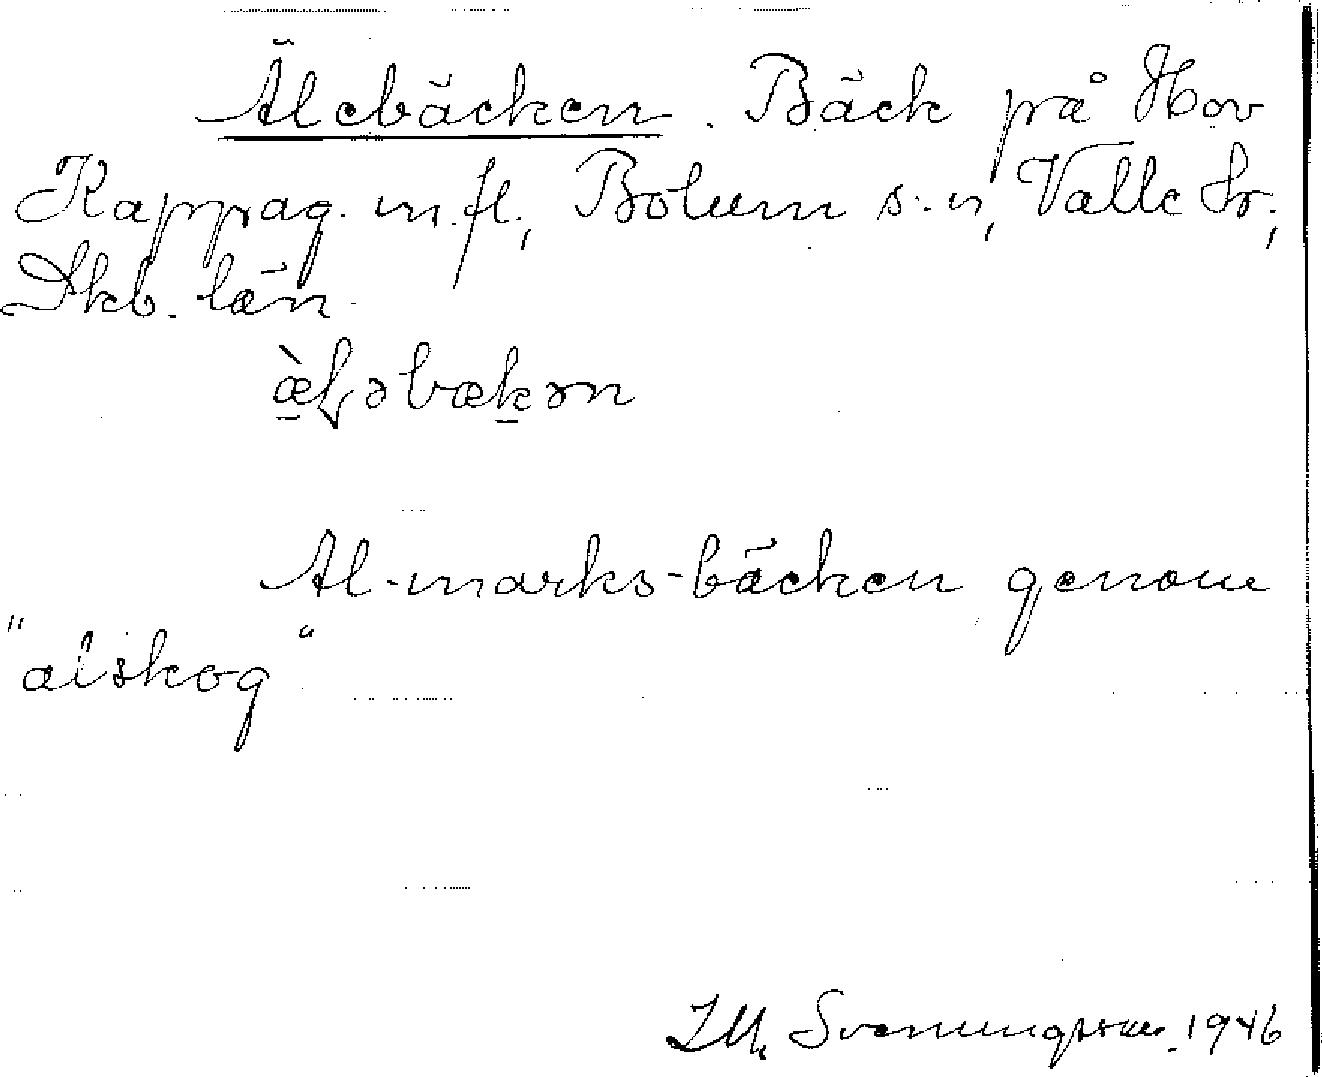 Älebäcken. Bäck på Hov
Kappag. m. fl., Bolum s:n, Valle hr.,
Skb. län
æ̀Ləbækən
Al-marks-bäcken genom
"alskog"
Svenungsson. 1946